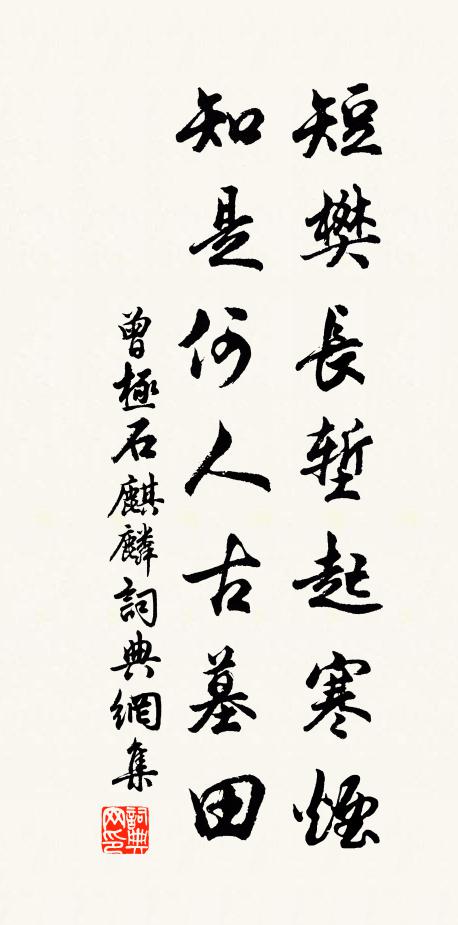 短樊長塹起寒煙
知是何人古墓田
曾極石麒麟詞典網集
詞典网印